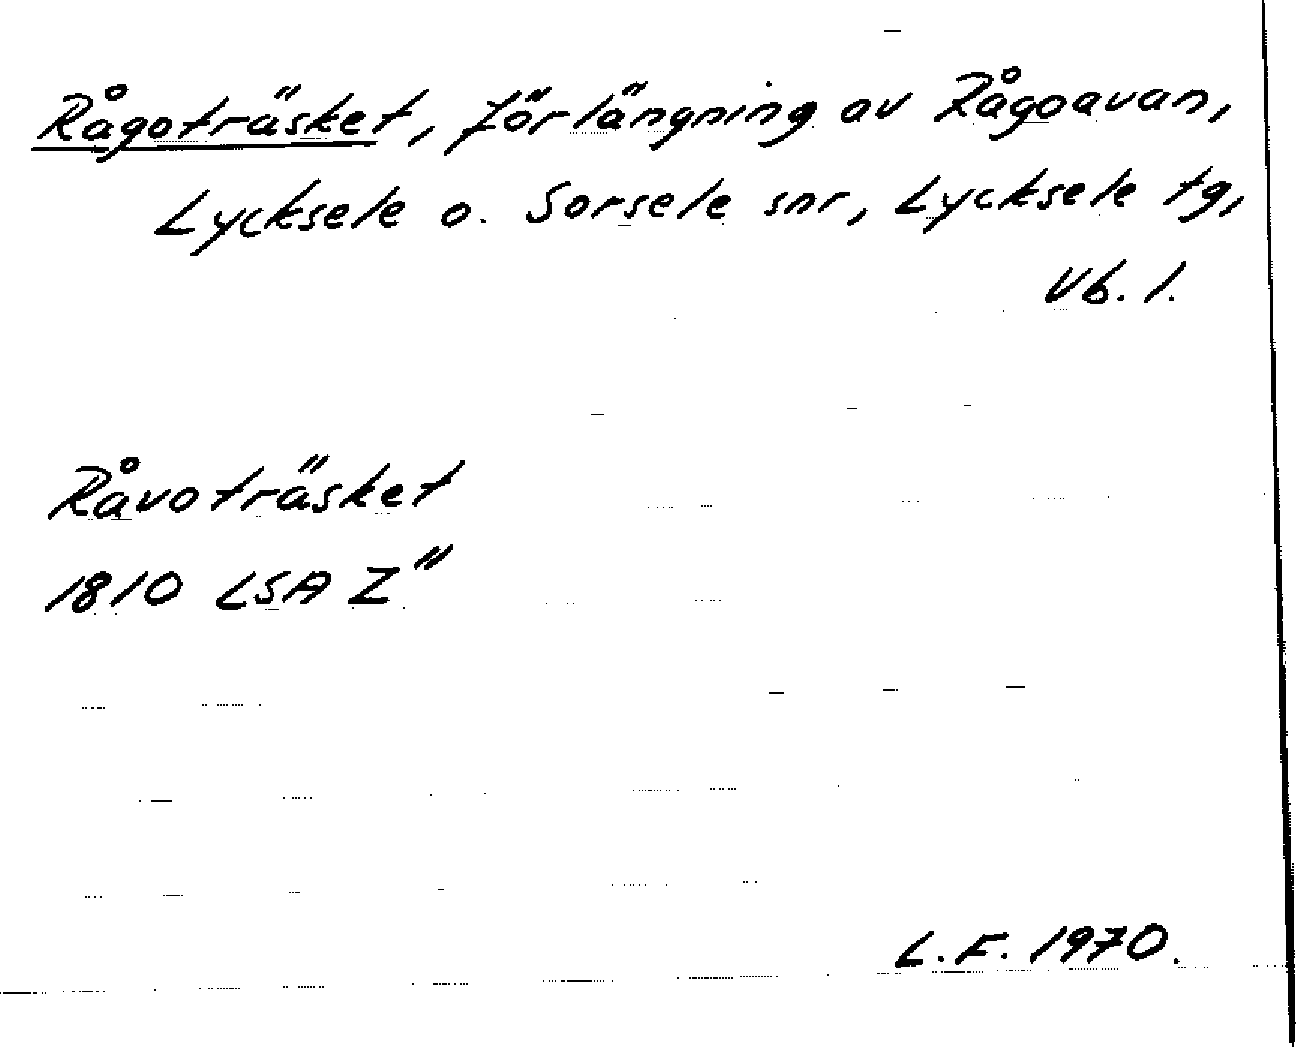 Rågoträsket, förlängning av Rågoavan,
Lycksele o. Sorsele snr, Lycksele tg,
Vb. l.
Råvoträsket
1810 LSA Z"
L.F. 1970.